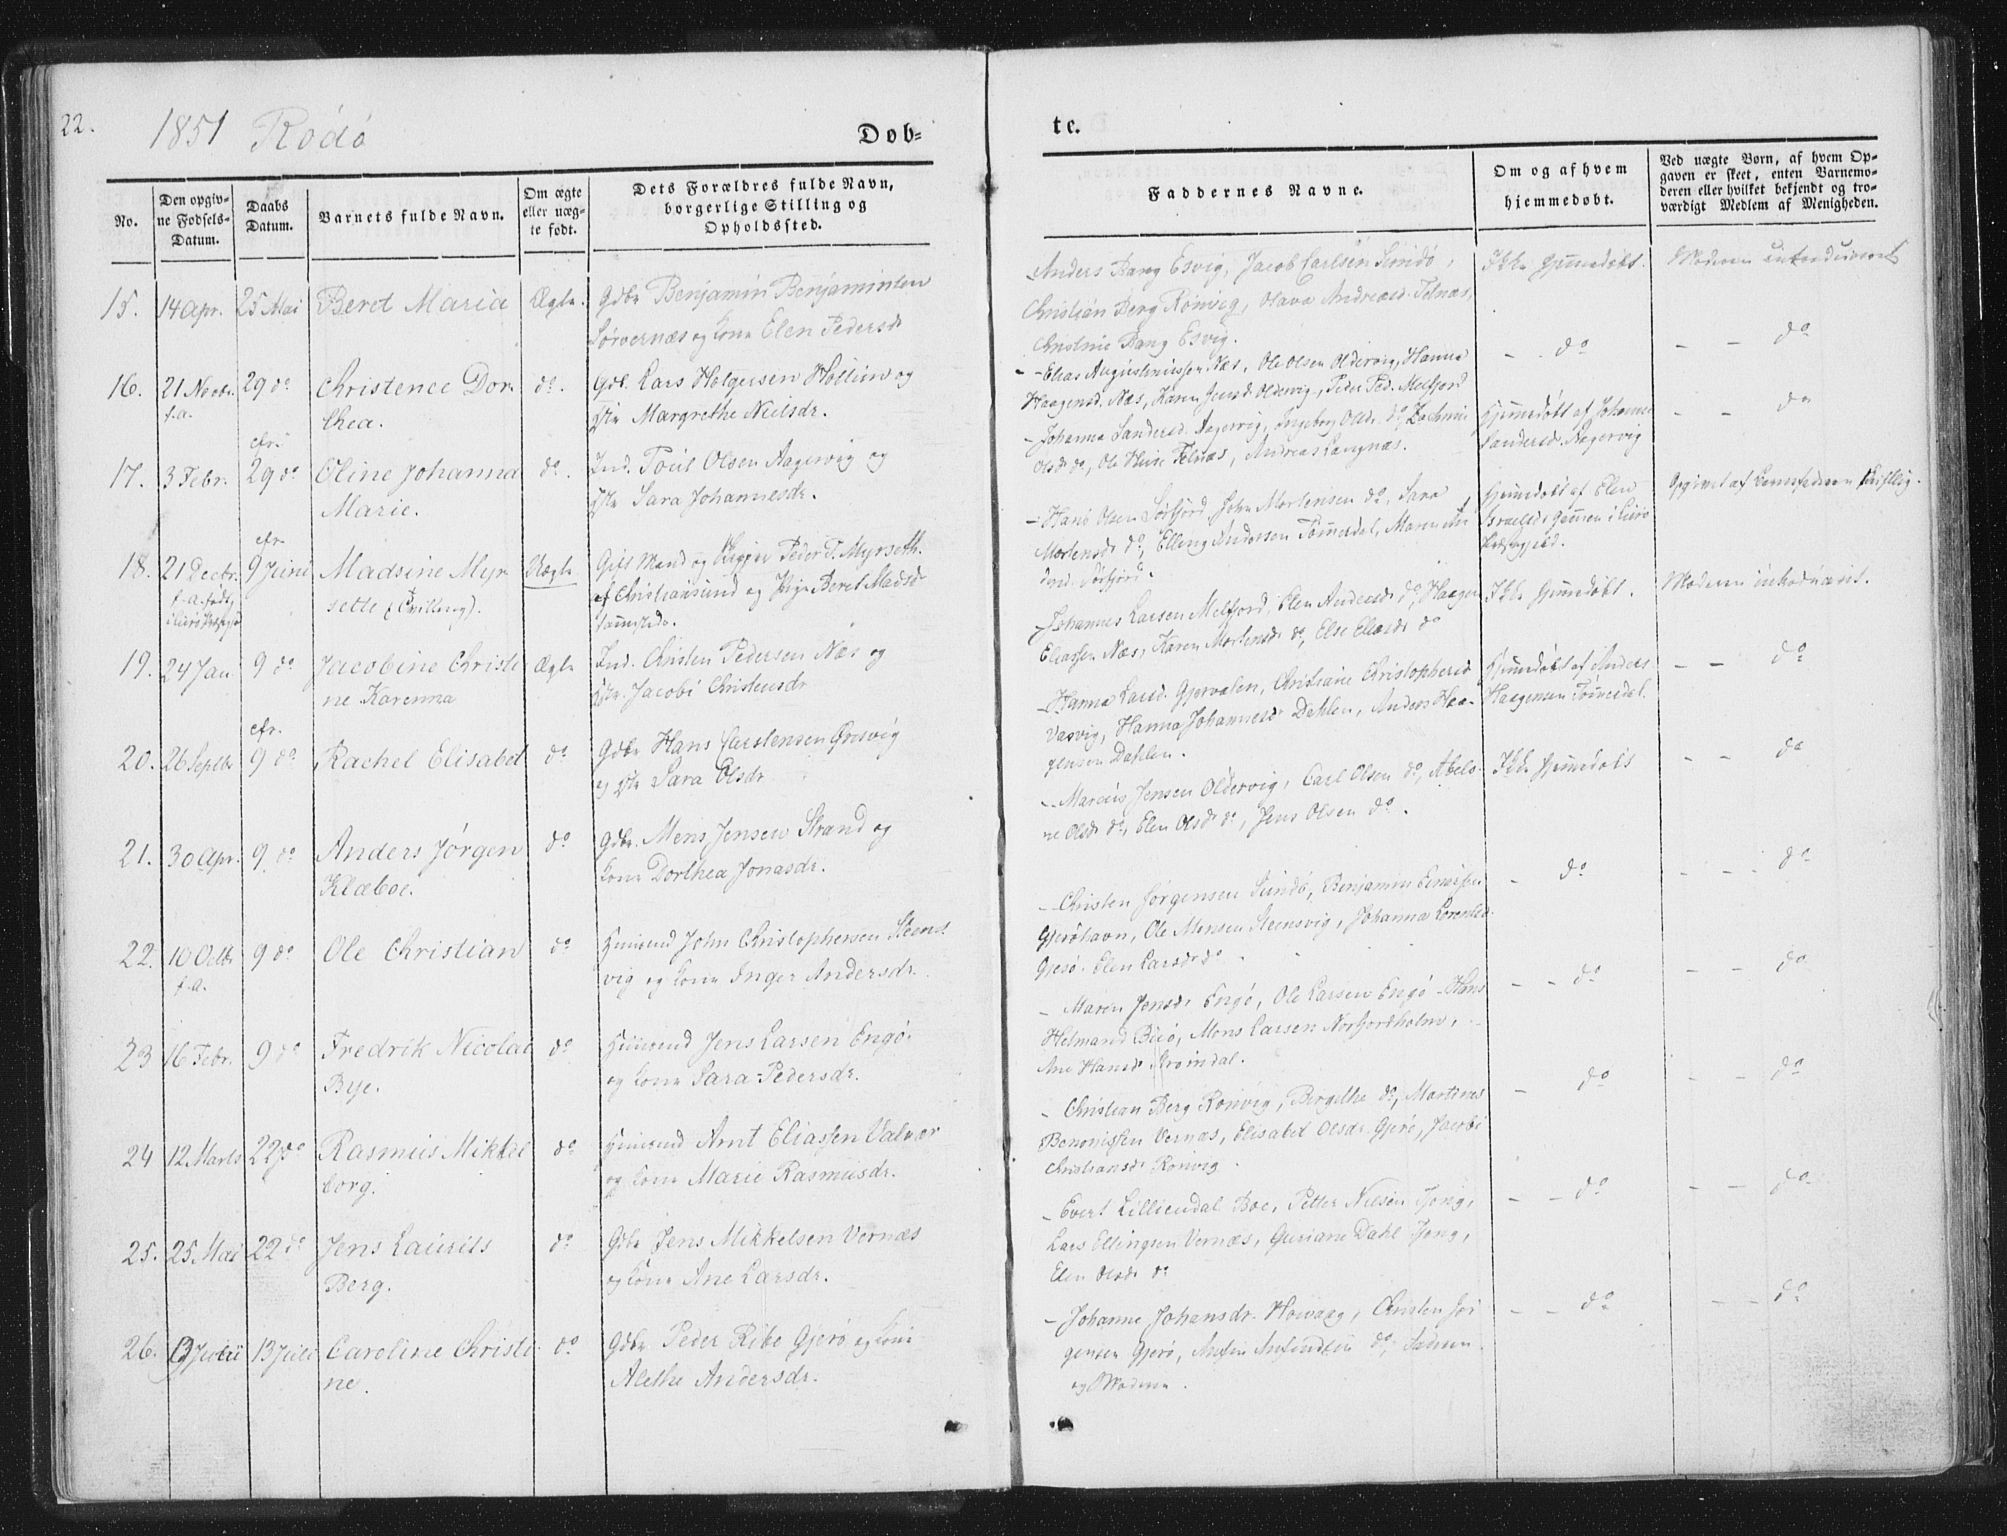 22.
1851 Rödö
Döb-
te.
No.
Den opgiv-
ne Fødsels-
Datum.
Daabs
Datum.
Barnets fulde Navn.
Om ægte
eller uæg-
te født.
Dets Forældres fulde Navn,
borgerlige Stilling og
Opholdssted.
Faddernes Navne.
Om og af hvem
hjemmedøbt.
Ved uægte Børn, af hvem Op-
gaven er skeet, enten Barnemo-
deren eller hvilket bekjendt og tro-
værdigt Medlem af Menigheden.
15. 14 Apr. 25 Mai Beret Maria Ægte. Gdbr Benjamin Benjaminsen
Sørvernæs og Kone Elen Pedersdr
Anders Bang Esvig, Jacob Carlsen Sundö,
Christian Berg Rönvig, Olava Andreasd. Telnæs,
Christine Bang Esvig.
Ikke hjemmedöbt.
Moderen introduceret
16. 21 Novbr. f.a. 29 do Christence Dor-
thea. do. Gdb. Lars Holgersen og
Hstr Margrethe Nielsdr.
- Elias Augustinussen Næs, Ole Olsen Oldervig, Hanna
Haagensd. Næs, Karen Jensd. Oldervig, Peder Ped. Melfjord
- do
- - do
17. 3 Febr. cfr. 29 do Oline Johanna
Marie. do. Ind. Poul Olsen Aagervig og
Hstr Sara Johannesdr.
- Johanna Sandersd. Aagervig, Ingeborg Olsdr. do,
Olsdr do, Ole Telnæs, Andreas Langnæs.
Hjemmedöbt af Johanna
Sandersd. Aagervig
- - do
18. 21 Decbr. f.a. född cfr. 9 Juni Madsine Myr
sette (Tvilling). Uægte Gift Mand og Peder T. Myrseth
af Christiansund og Pige Beret Madsdr
- Hans Olsen Sörfjord, John Mortensen do, Sara
Mortensdr do, Elling Andersen Tönnesdal, Maren
Sörfjord.
Hjemmedöbt af Elen
Israelsdr i Lurö
Præstegjeld.
Opgivet af Barnefaderen skriftlig.
19. 24 Jan. 9 do Jacobine Christi-
ne Karenna Ægte Ind. Christen Pedersen Næs og
Hstr. Jacobi Christensdr
Johannes Larsen Melfjord, Elen Andersdr do, Haagen
Eliassen Næs, Karen Mortensdr do, Else Eliasdr do
Ikke hjemmedöbt.
Moderen introduceret.
20. 26 Septbr cfr. 9 do Rachel Elisabet do Gdbr Hans Carstensen Öresvig
og Hstr Sara Olsdr
- Hanna Larsd. Gjervalen, Christiane Christophersd
Vasvig, Hanna Johannesdr Dahlen, Anders Haa-
gensen Dahlen.
Hjemmedöbt af Anders
Haagensen Tönnesdal.
- - do
21. 30 Apr. 9 do Anders Jörgen
Klæboe. do Gdbr. Mons Jensen Strand og
Kone Dorthea Jonasdr.
- Marcus Jensen Oldervig, Carl Olsen do, Abelo-
ne Olsdr do, Elen Olsdr do, Jens Olsen do.
Ikke hjemmedöbt
- - do
22. 10 Octbr f.a. 9 do Ole Christian do Huusmd John Christophersen Steens-
vig og Kone Inger Andersdr.
- Christen Jörgensen Sundö, Benjamin
Gjeröhavn, Ole Monsen Steensvig, Johanna Lorentsd.
Gjerö, Elen Larsdr do
- do
- - do
23 16 Febr. 9 do Fredrik Nicolai
Bye. do Huusmd Jens Larsen Engö
og Kone Sara Pedersdr.
- Maren Jensdr Engö, Ole Larsen Engö, Hans
Helmand Buö, Mons Larsen Norfjordholm,
Ane Hansdr Strömdal.
- - do
- - do
24 12 Marts 22 do Rasmus Mikkel
borg. do Huusmd Arnt Eliassen Valvær
og Kone Marie Rasmusdr.
- Christian Berg Rönvig, Bergithe do, Martinus
Benonissen Vernæs, Elisabet Olsdr. Gjerö, Jacobi
Christiansdr Rönvig.
- do
- - do
25. 25 Mai 22 do Jens Laurits
Berg. do Gdbr Jens Mikkelsen Vernæs
og Kone Ane Larsdr.
- Evert Lilliendal Boe, Petter Nilsen Tjong,
Lars Ellingsen Vernæs, Guriane Dahl Tjong,
Elen Olsdr do
- - do
- - do
26. 3 Juli 13 Juli Caroline Christi-
ne. do Gdbr Peder Ribe Gjerö og Kone
Alethe Andersdr.
- Johanne Johansdr. Hovaag, Christen Jör-
gensen Gjerö, do, Faderen
og Moderen.
- - do
- - do